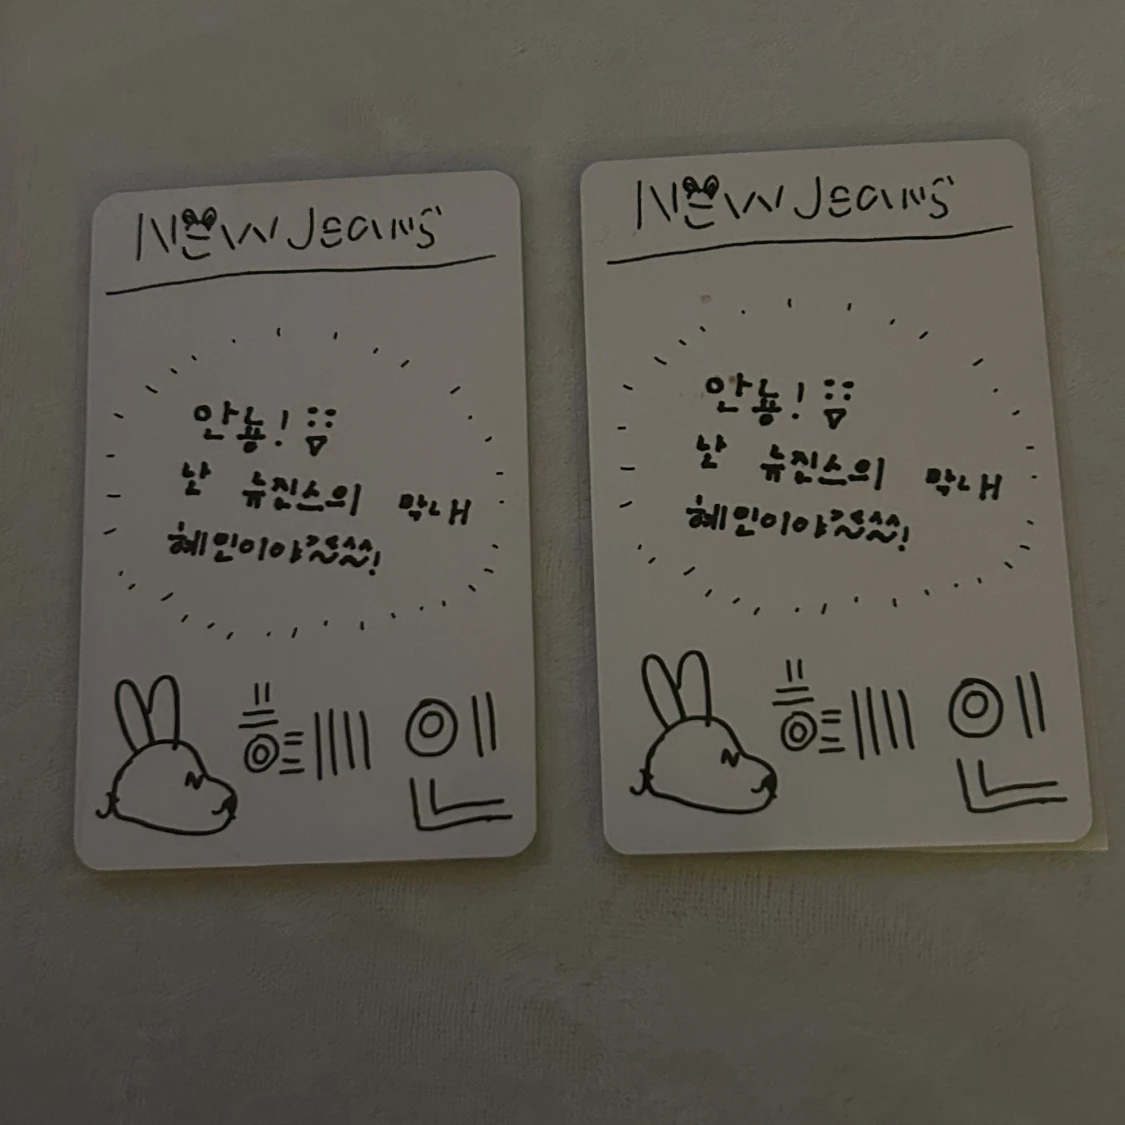 NEW Jeans
안뇽!
난 뉴진스의 막내
혜인이야~~!
혜인
NEW Jeans
안뇽!
난 뉴진스의 막내
혜인이야~~!
혜인